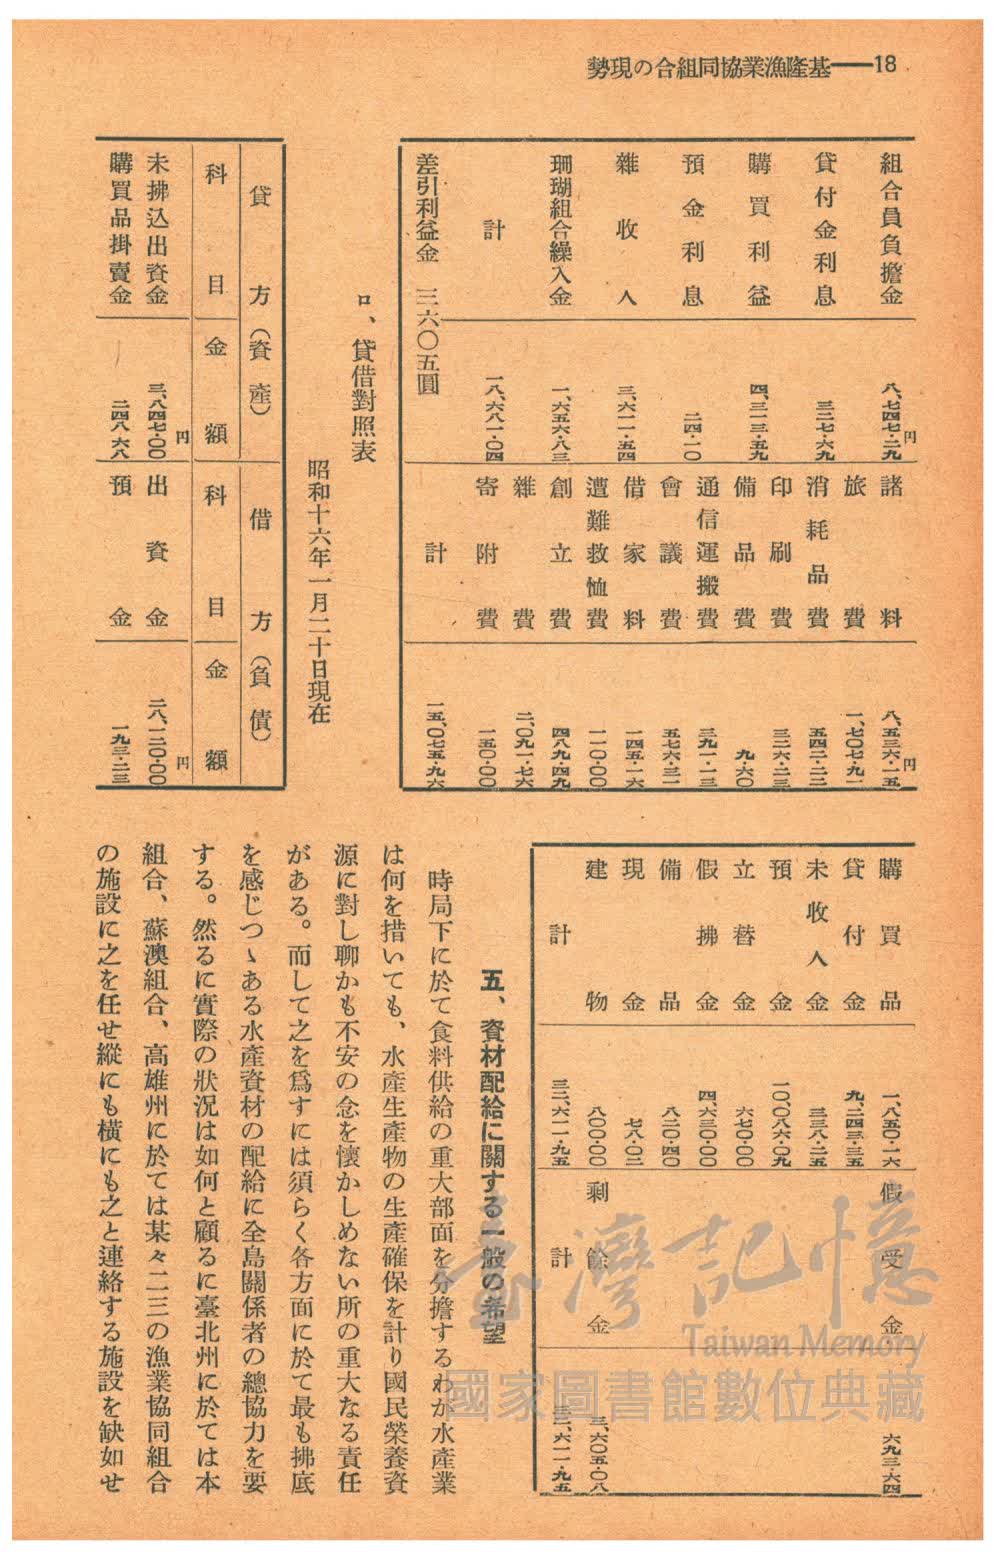 18——基隆漁業協同組合の現勢
組合員負擔金 八、七四七・二九円 諸料 八、五三六・一五円
貸付金利息 三二七・六九 旅費 一、七〇七・九一
購買利益 四、三一三・五九 消耗品費 五四二・二二
預金利息 二四・一〇 印刷費 三二六・二三
雜收入 三、六一一・五四 備品費 九・六〇
珊瑚組合繰入金 一、六五六・八三 通信運搬費 三九一・一三
計 一八、六八一・〇四 會議費 五七六・三一
借家料 一四五・一六
遭難救恤費 一一〇・〇〇
創立費 四八九・四九
雜費 二、〇九一・七六
寄附費 一五〇・〇〇
計 一五、〇七五・九六
差引利益金 三六〇五圓
ロ、貸借對照表
昭和十六年一月二十日現在
貸方(資產) 借方(負債)
科目 金額 科目 金額
未拂込出資金 三、八四七・〇〇円 出資金 二八、一二〇・〇〇円
購買品掛賣金 二四八・六八 預金 一九三・二三
購買品 一、八五〇・一六 假受金 六九三・六四
貸付金 九、二四三・三五
未收入金 三三八・二五
預金 一〇、〇八六・〇九
立替金 六七〇・〇〇
假拂金 四、六三〇・〇〇
備品 八二〇・四〇
現金 七八・〇二
建物 八〇〇・〇〇 剩餘金 三、六〇五・〇八
計 三二、六一一・九五 計 三二、六一一・九五
五、資材配給に關する一般の希望
時局下に於て食料供給の重大部面を分擔するわが水產業
は何を措いても、水產生產物の生產確保を計り國民榮養資
源に對し聊かも不安の念を懷かしめない所の重大なる責任
がある。而して之を爲すには須らく各方面に於て最も拂底
を感じつゝある水產資材の配給に全島關係者の總協力を要
する。然るに實際の狀況は如何と顧るに臺北州に於ては本
組合、蘇澳組合、高雄州に於ては某々二三の漁業協同組合
の施設に之を任せ縱にも橫にも之と連絡する施設を缺如せ
臺灣記憶
Taiwan Memory
國家圖書館數位典藏